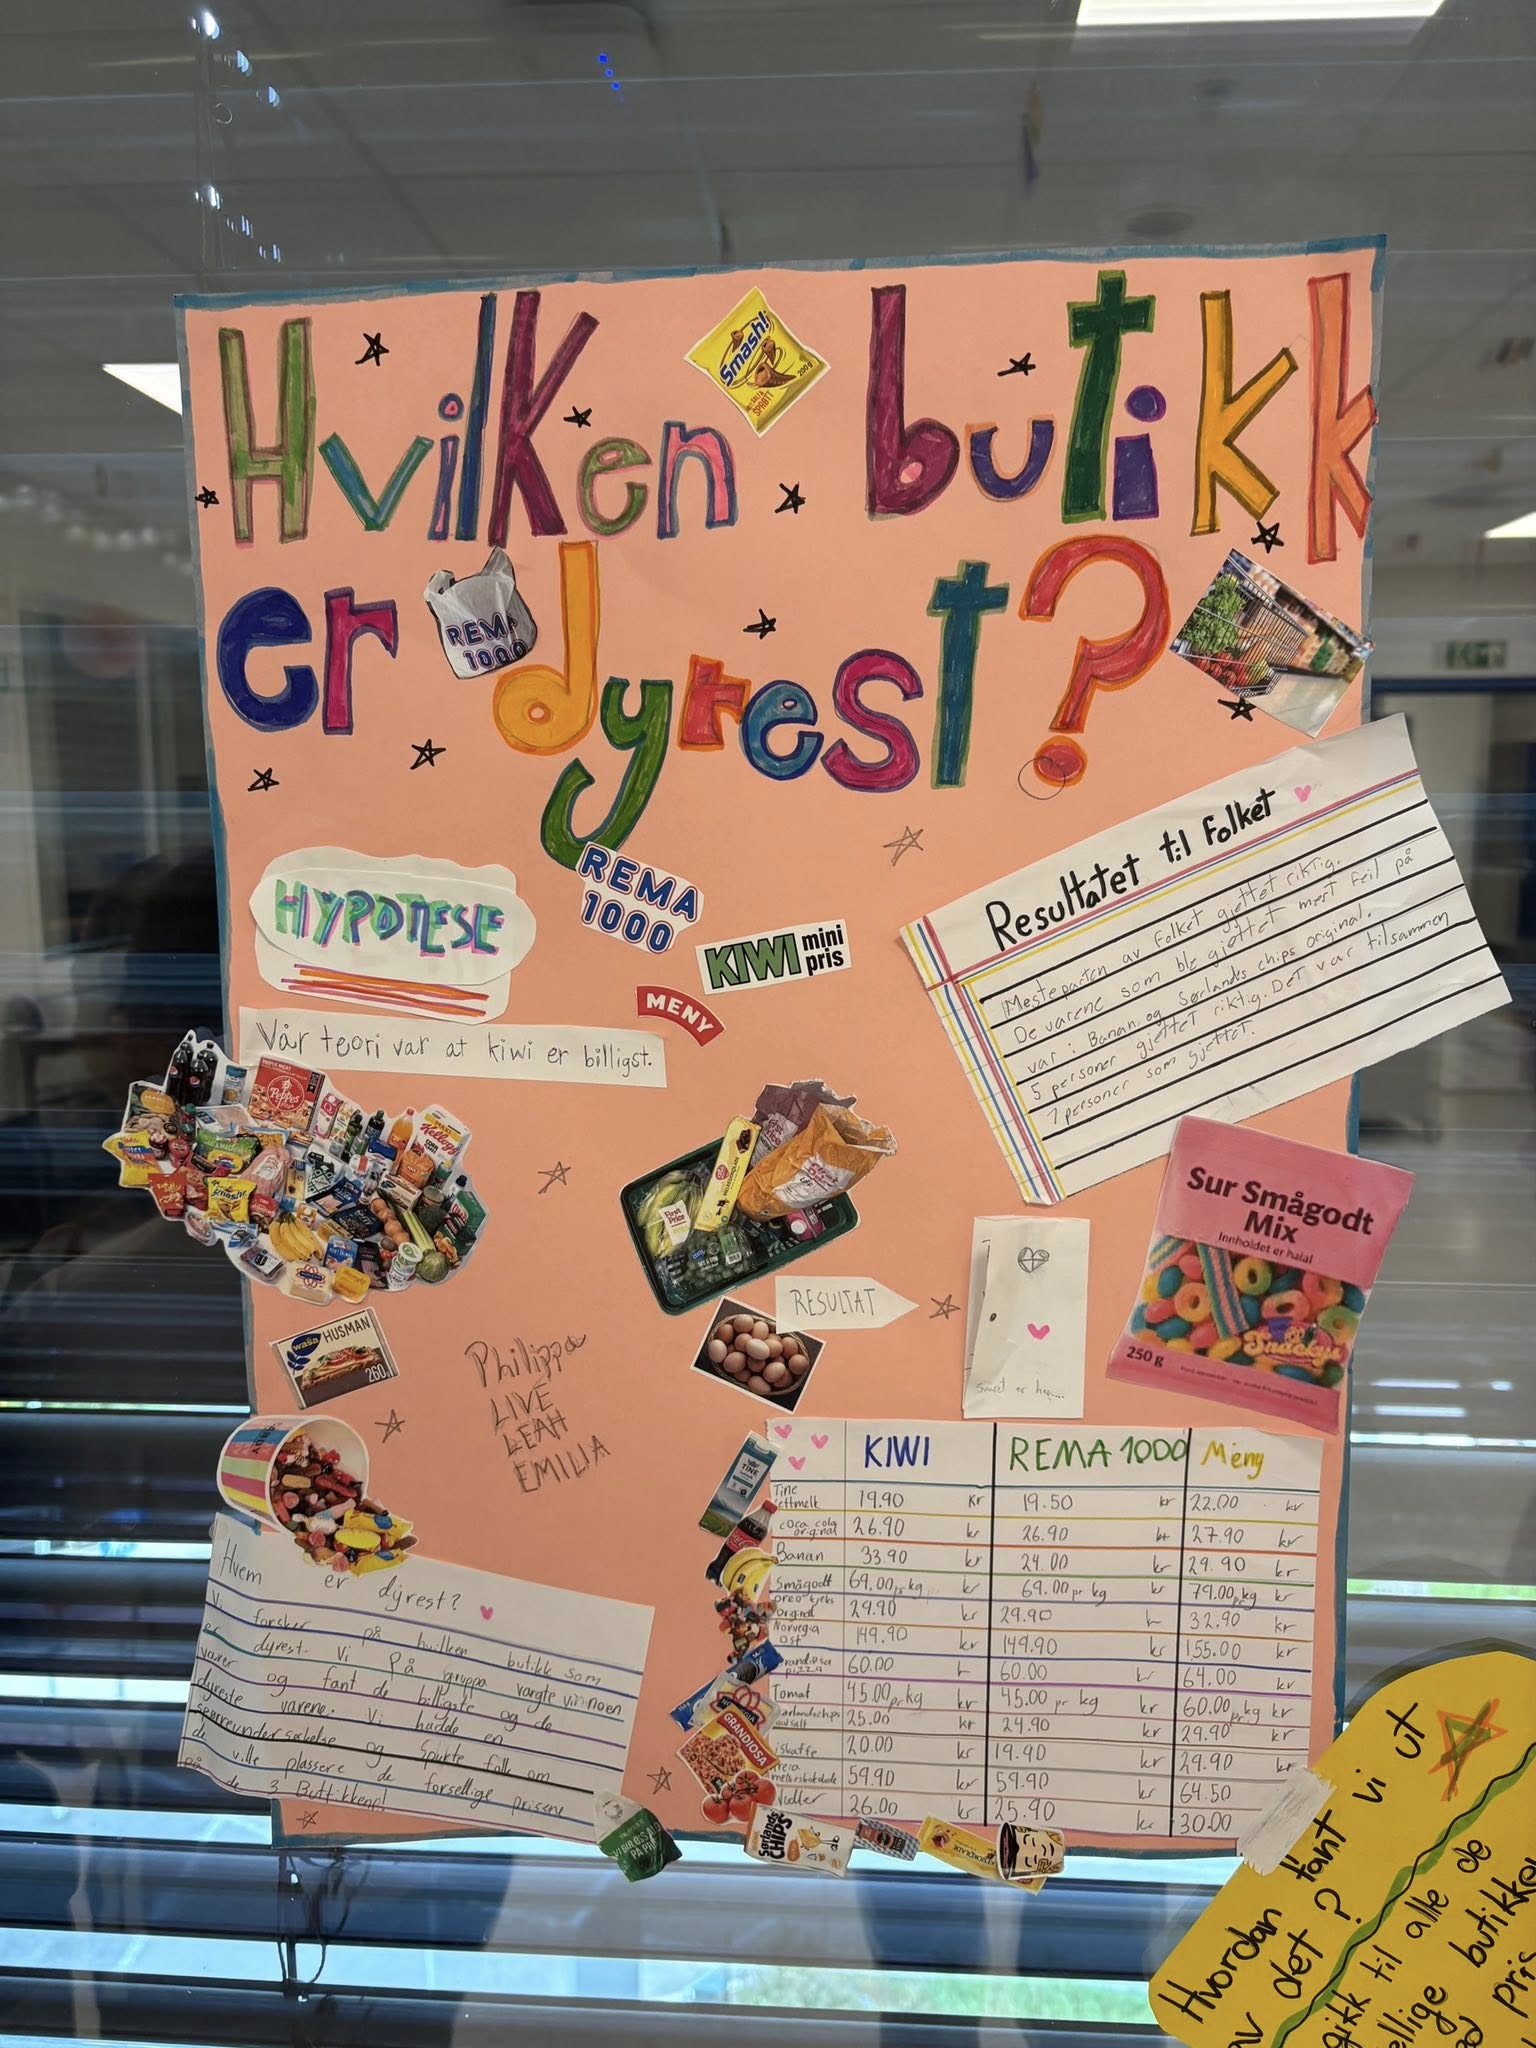 Hvilken butikk
er dyrest?
Smash!
SPRØTT
200g
REMA
1000
HYPOTESE
REMA
1000
KIWI mini
pris
MENY
Vår teori var at kiwi er billigst.
Resultatet til Folket
Mesteparten av Folket gjettet riktig.
De varene som ble gjettet mest feil på
var : Banan, og Sørlands chips original.
5 personer gjettet riktig. Det var tilsammen
7 personer som gjettet.
Peppes
Kellogg's
Smash!
First
Price
First
Price
Sur Smågodt
Mix
Innholdet er halal
Snacky's
250 g
RESULTAT
Svaret er her....
wasa HUSMAN
260
Philippa
LIVE
LEAH
EMILIA
Hvem er dyrest?
Vi forsker på hvilken butikk som
er dyrest. Vi på gruppa vargte vinnoen
varer og fant de billigste og de
dyreste varene. Vi hadde en
spørreundersøkelse og Spurte folk om
de ville plassere de forsellige prisene
på de 3 Buttikkene!
KIWI REMA 1000 Meny
Tine lettmelk 19.90 kr 19.50 kr 22.00 kr
coca cola original 26.90 kr 26.90 kr 27.90 kr
Banan 33.90 kr 24.00 kr 29.90 kr
Smågodt 69.00 pr kg kr 69.00 pr kg kr 79.00 pr kg kr
oreo kjeks orginal 29.90 kr 29.90 kr 32.90 kr
Norvegia ost 149.90 kr 149.90 kr 155.00 kr
pizza 60.00 kr 60.00 kr 64.00 kr
Tomat 45.00 pr kg kr 45.00 pr kg kr 60.00 pr kg kr
25.00 kr 24.90 kr 29.90 kr
iskaffe 20.00 kr 19.90 kr 29.90 kr
melkesjokolade 59.90 kr 59.90 kr 64.50 kr
26.00 kr 25.90 kr 30.00
TINE
NORVEGIA
GRANDIOSA
Sørlands
CHIPS
Hvordan fant vi ut
av det?
gikk til alle de
butikke
pris